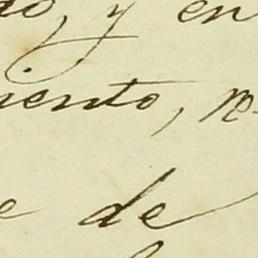 do, y en
iento, re-
e de